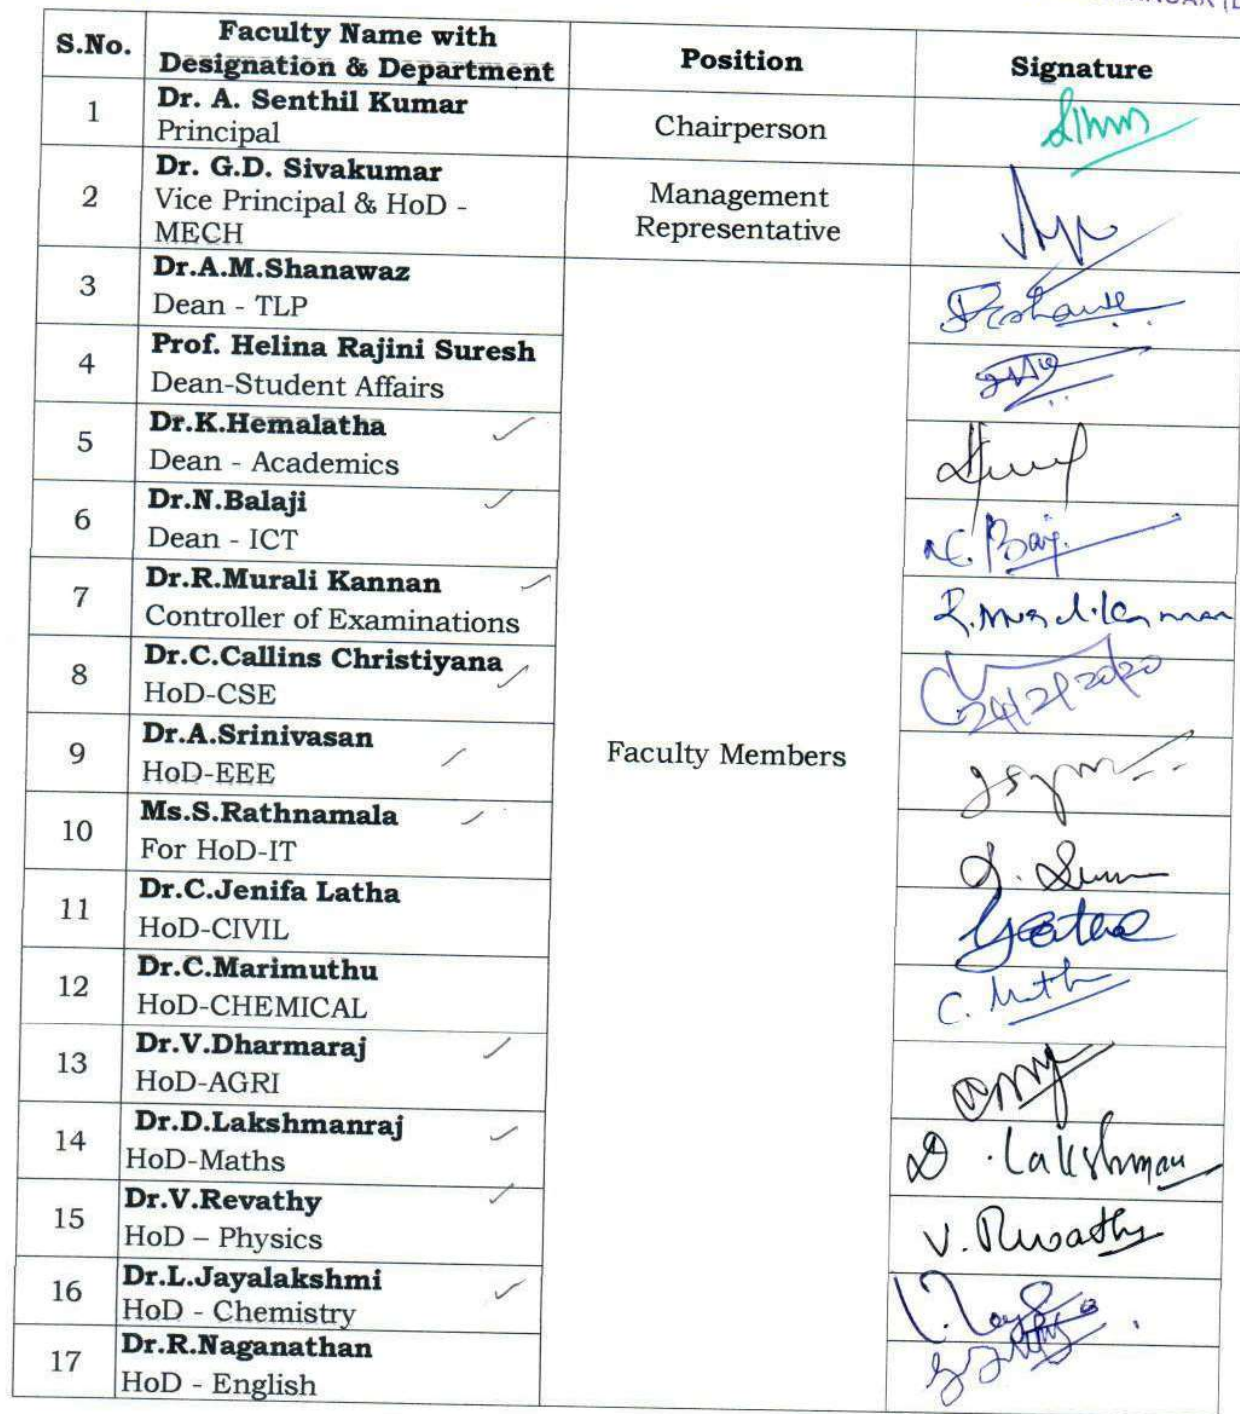 S.No.
Faculty Name with
Designation & Department
Position
Signature
1
Dr. A. Senthil Kumar
Principal
Chairperson
2
Dr. G.D. Sivakumar
Vice Principal & HoD -
MECH
Management
Representative
3
Dr.A.M.Shanawaz
Dean - TLP
4
Prof. Helina Rajini Suresh
Dean-Student Affairs
5
Dr.K.Hemalatha
Dean - Academics
6
Dr.N.Balaji
Dean - ICT
7
Dr.R.Murali Kannan
Controller of Examinations
8
Dr.C.Callins Christiyana
HoD-CSE
24/2/2020
9
Dr.A.Srinivasan
HoD-EEE
Faculty Members
10
Ms.S.Rathnamala
For HoD-IT
11
Dr.C.Jenifa Latha
HoD-CIVIL
12
Dr.C.Marimuthu
HoD-CHEMICAL
C. Muth
13
Dr.V.Dharmaraj
HoD-AGRI
14
Dr.D.Lakshmanraj
HoD-Maths
D. Lakshman
15
Dr.V.Revathy
HoD – Physics
V. Revathy
16
Dr.L.Jayalakshmi
HoD - Chemistry
17
Dr.R.Naganathan
HoD - English